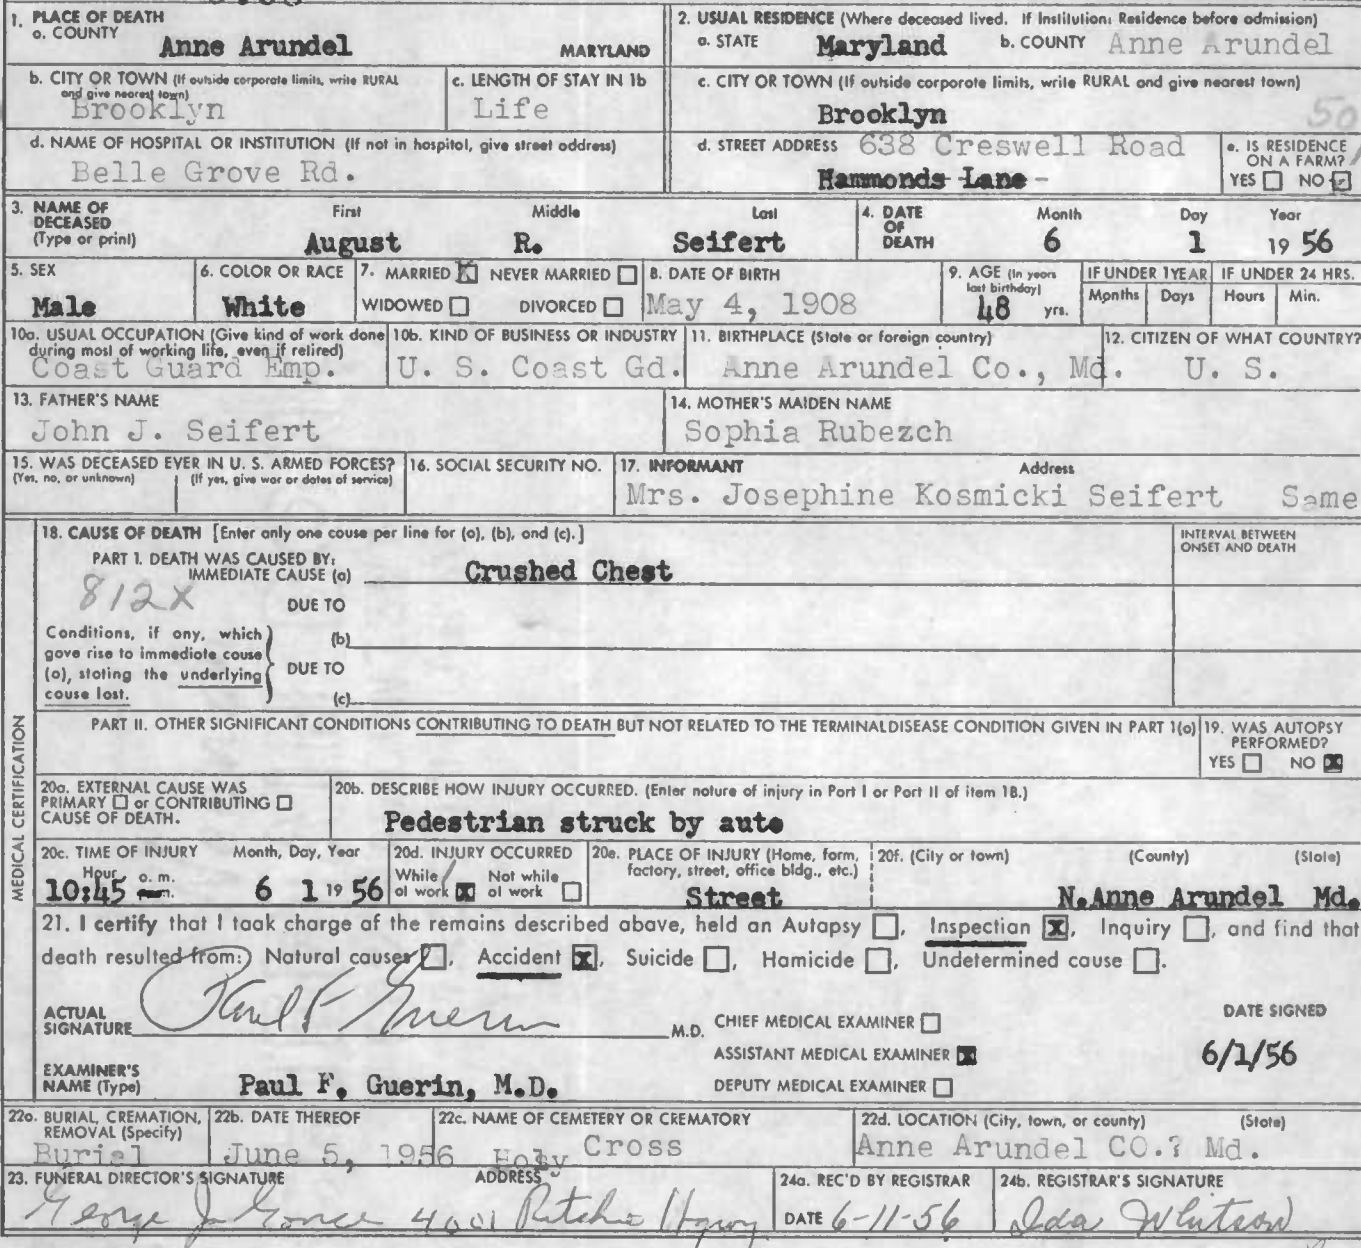 1. PLACE OF DEATH
a. COUNTY
Anne Arundel MARYLAND
2. USUAL RESIDENCE (Where deceased lived. If Institution: Residence before admission)
a. STATE Maryland b. COUNTY Anne Arundel
b. CITY OR TOWN (If outside corporate limits, write RURAL and give nearest town)
Brooklyn
c. LENGTH OF STAY IN 1b
Life
c. CITY OR TOWN (If outside corporate limits, write RURAL and give nearest town)
Brooklyn
50
d. NAME OF HOSPITAL OR INSTITUTION (If not in hospital, give street address)
Belle Grove Rd.
d. STREET ADDRESS 638 Creswell Road
Hammonds Lane
e. IS RESIDENCE ON A FARM?
YES NO
3. NAME OF DECEASED (Type or print)
First Middle Last
August R. Seifert
4. DATE OF DEATH
Month Day Year
6 1 19 56
5. SEX
Male
6. COLOR OR RACE
White
7. MARRIED NEVER MARRIED
WIDOWED DIVORCED
8. DATE OF BIRTH
May 4, 1908
9. AGE (In years last birthday)
48 yrs.
IF UNDER 1 YEAR
Months Days
IF UNDER 24 HRS.
Hours Min.
10a. USUAL OCCUPATION (Give kind of work done during most of working life, even if retired)
Coast Guard Emp.
10b. KIND OF BUSINESS OR INDUSTRY
U. S. Coast Gd.
11. BIRTHPLACE (State or foreign country)
Anne Arundel Co., Md.
12. CITIZEN OF WHAT COUNTRY?
U. S.
13. FATHER'S NAME
John J. Seifert
14. MOTHER'S MAIDEN NAME
Sophia Rubezch
15. WAS DECEASED EVER IN U. S. ARMED FORCES?
(Yes, no, or unknown) (If yes, give war or dates of service)
16. SOCIAL SECURITY NO.
17. INFORMANT Address
Mrs. Josephine Kosmicki Seifert Same
MEDICAL CERTIFICATION
18. CAUSE OF DEATH [Enter only one cause per line for (a), (b), and (c).]
INTERVAL BETWEEN ONSET AND DEATH
PART I. DEATH WAS CAUSED BY:
IMMEDIATE CAUSE (a) Crushed Chest
812X
DUE TO
Conditions, if any, which gave rise to immediate cause (a), stating the underlying cause last.
(b)
DUE TO
(c)
PART II. OTHER SIGNIFICANT CONDITIONS CONTRIBUTING TO DEATH BUT NOT RELATED TO THE TERMINAL DISEASE CONDITION GIVEN IN PART 1(a)
19. WAS AUTOPSY PERFORMED?
YES NO
20a. EXTERNAL CAUSE WAS
PRIMARY or CONTRIBUTING
CAUSE OF DEATH.
20b. DESCRIBE HOW INJURY OCCURRED. (Enter nature of injury in Part I or Part II of item 18.)
Pedestrian struck by auto
20c. TIME OF INJURY Month, Day, Year
Hour a. m.
10:45 p. m. 6 1 19 56
20d. INJURY OCCURRED
While at work Not while at work
20e. PLACE OF INJURY (Home, farm, factory, street, office bldg., etc.)
Street
20f. (City or town) (County) (State)
N.Anne Arundel Md.
21. I certify that I took charge of the remains described above, held an Autopsy , Inspection X, Inquiry , and find that
death resulted from: Natural causes , Accident X, Suicide , Homicide , Undetermined cause .
ACTUAL SIGNATURE Paul F Guerin M.D.
CHIEF MEDICAL EXAMINER
ASSISTANT MEDICAL EXAMINER X
DEPUTY MEDICAL EXAMINER
DATE SIGNED
6/1/56
EXAMINER'S NAME (Type) Paul F. Guerin, M.D.
22a. BURIAL, CREMATION, REMOVAL (Specify)
Burial
22b. DATE THEREOF
June 5, 1956
22c. NAME OF CEMETERY OR CREMATORY
Holy Cross
22d. LOCATION (City, town, or county) (State)
Anne Arundel CO.? Md.
23. FUNERAL DIRECTOR'S SIGNATURE ADDRESS
George J Gonce 4001 Ritchie Hgwy
24a. REC'D BY REGISTRAR
DATE 6-11-56
24b. REGISTRAR'S SIGNATURE
Ida Whitson